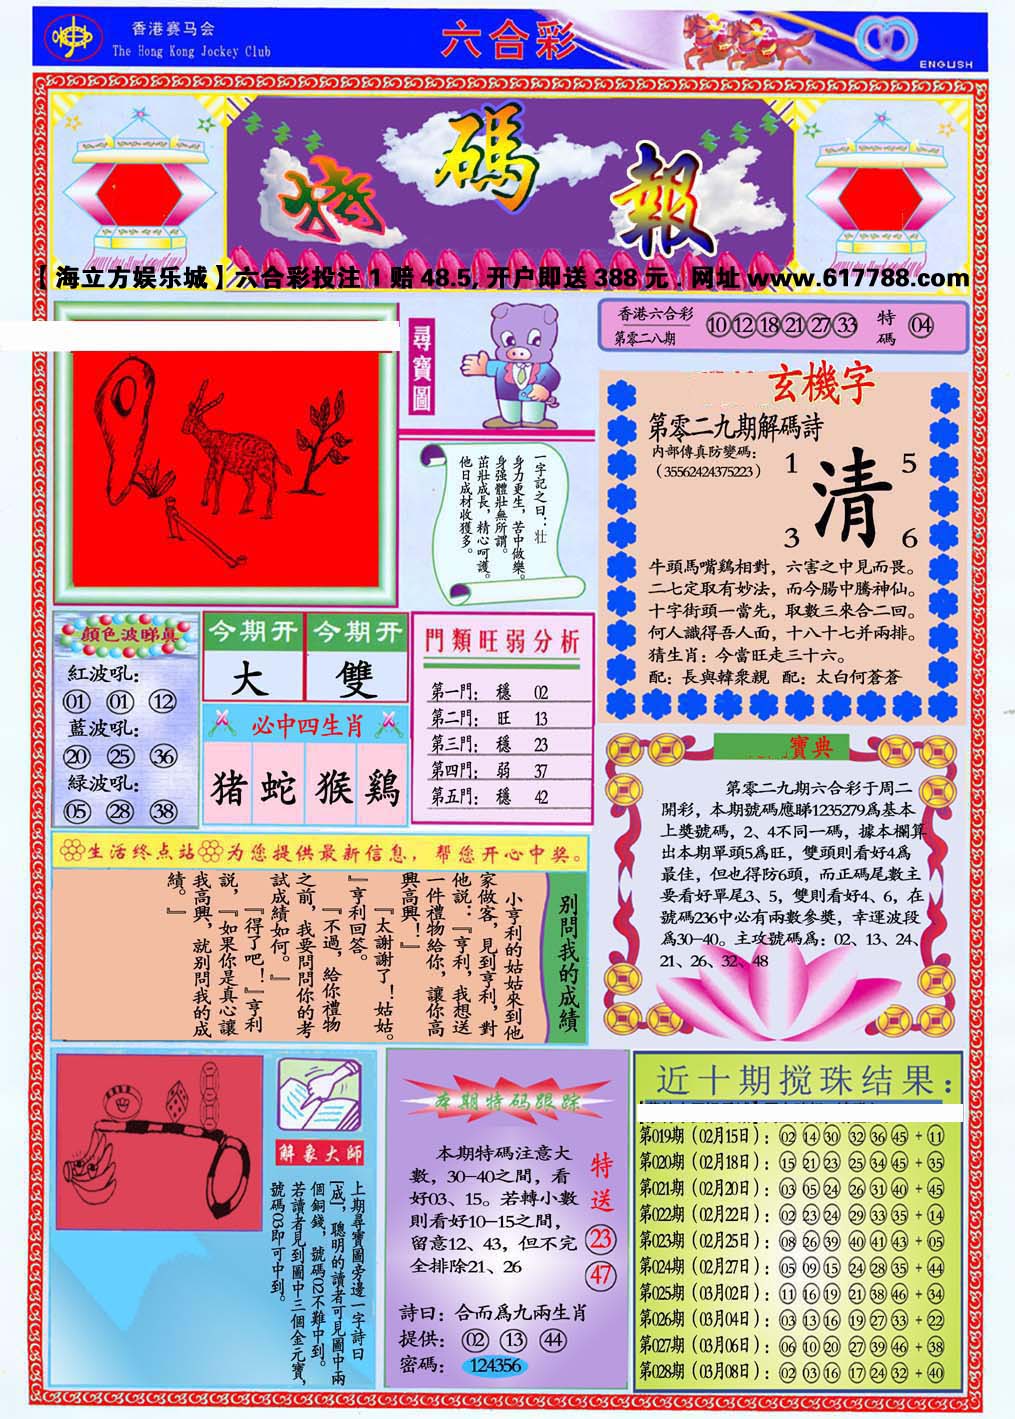 香港赛马会
The Hong Kong Jockey Club
六合彩
ENGLISH
特碼報
【海立方娱乐城】六合彩投注1赔48.5,开户即送388元.网址www.617788.com
尋寶圖
一字記之曰：壯
身力更生，苦中做樂。
身强體壯無所謂。
茁壯成長，精心呵護。
他日成材收獲多。
香港六合彩
第零二八期
10 12 18 21 27 33
特碼
04
玄機字
第零二九期解碼詩
内部傳真防變碼：
（35562424375223）
1 5
清
3 6
牛頭馬嘴鷄相對，六害之中見而畏。
二七定取有妙法，而今腸中騰神仙。
十字街頭一當先，取數三來合二回。
何人識得吾人面，十八十七并兩排。
猜生肖：今當旺走三十六。
配：長與韓衆親 配：太白何蒼蒼
顔色波睇真
紅波吼：
01 01 12
藍波吼：
20 25 36
緑波吼：
05 28 38
今期开
大
今期开
雙
必中四生肖
猪 蛇 猴 鷄
門類旺弱分析
第一門： 穩 02
第二門： 旺 13
第三門： 穩 23
第四門： 弱 37
第五門： 穩 42
寶典
第零二九期六合彩于周二
開彩，本期號碼應睇1235279爲基本
上獎號碼，2、4不同一碼，據本欄算
出本期單頭5爲旺，雙頭則看好4爲
最佳，但也得防6頭，而正碼尾數主
要看好單尾3、5，雙則看好4、6，在
號碼236中必有兩數參獎，幸運波段
爲30-40。主攻號碼爲：02、13、24、
21、26、32、48
生活终点站 为您提供最新信息，帮您开心中奖。
别問我的成績
小亨利的姑姑來到他
家做客，見到亨利，對
他説：『亨利，我想送
一件禮物給你，讓你高
興高興！』
『太謝謝了！姑姑。
』亨利回答。
『不過，給你禮物
之前，我要問問你的考
試成績如何。』
『得了吧！』亨利
説，『如果你是真心讓
我高興，就别問我的成
績。』
解象大師
上期尋寶圖旁邊一字詩曰
[成]，聰明的讀者可見圖中兩
個銅錢，號碼02不難中到。
若讀者見到圖中三個金元寶，
號碼03即可中到。
本期特码跟踪
本期特碼注意大
數，30-40之間，看
好03、15。若轉小數
則看好10-15之間，
留意12、43，但不完
全排除21、26
特送
23
47
詩曰：合而爲九兩生肖
提供： 02 13 44
密碼： 124356
近十期搅珠结果：
第019期（02月15日）：02 14 30 32 36 45 + 11
第020期（02月18日）：15 21 23 25 34 45 + 35
第021期（02月20日）：03 05 24 26 31 40 + 45
第022期（02月22日）：02 23 24 29 33 35 + 14
第023期（02月25日）：08 26 39 40 41 43 + 05
第024期（02月27日）：05 09 15 24 28 35 + 44
第025期（03月02日）：11 16 19 21 38 46 + 34
第026期（03月04日）：03 13 16 19 27 33 + 22
第027期（03月06日）：06 10 20 27 39 46 + 38
第028期（03月08日）：02 03 16 17 24 32 + 40